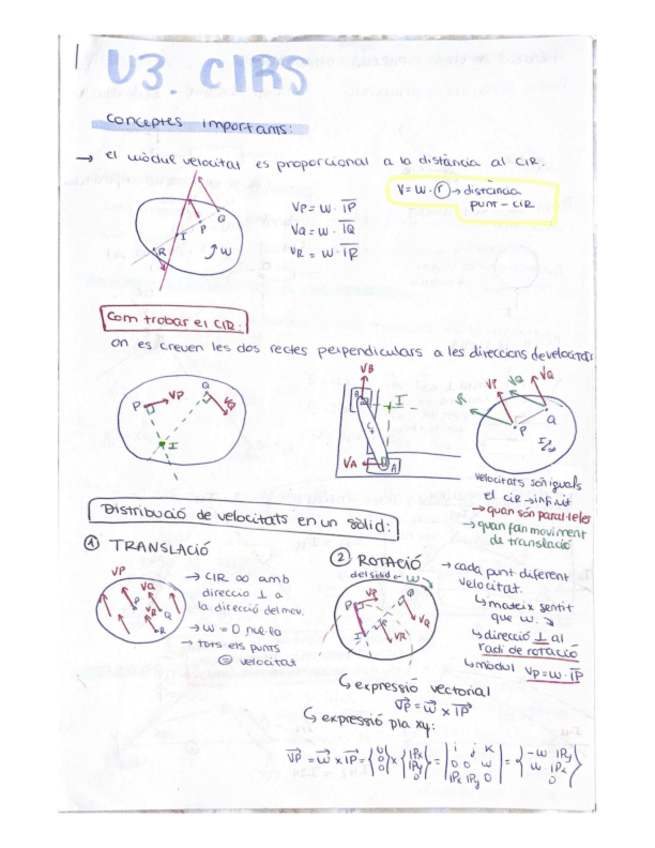 U3. CIRS
conceptes importants:
→ el mòdul velocitat es proporcional a la distància al CIR.
V = w · r → distància
punt - CIR
Q
P
I
R
w
VP = w · IP
VQ = w · IQ
VR = w · IR
Com trobar el CIR:
on es creuen les dos rectes perpendiculars a les direccions de velocitats
P
VP
Q
VQ
I
VB
B
I
VA
A
VP
VQ
VQ
VP
P
Q
velocitats són iguals
el CIR → infinit
→ quan són paral·leles
→ quan fan moviment
de translació
Distribució de velocitats en un sòlid:
① TRANSLACIÓ
VP
VQ
P
VR
Q
R
→ CIR ∞ amb
direcció ⊥ a
la direcció del mov.
→ w = 0 nul·la
→ tots els punts
= velocitat
② ROTACIÓ
del sòlid ← w
P
VP
Q
VQ
I
R
VR
→ cada punt diferent
velocitat.
↳ mateix sentit
que w.
↳ direcció ⊥ al
radi de rotació
↳ mòdul VP = w · IP
↳ expressió vectorial
VP = w x IP
↳ expressió pla xy:
VP = w x IP = {0 0 w} x {IPx IPy 0} = |i j k 0 0 w IPx IPy 0| = {-w IPy w IPx 0}